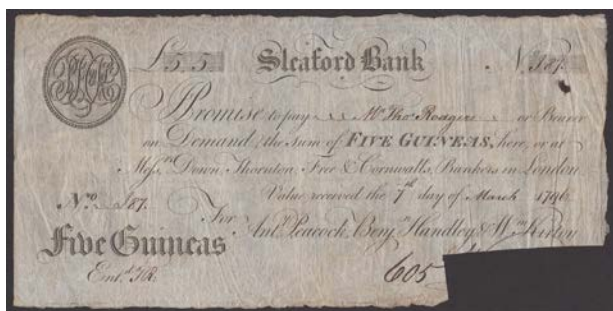 £5,5 Sleaford Bank No. 187.
Promise to pay Mr. Thos. Rodgers or Bearer
on Demand, the Sum of FIVE GUINEAS, here, or at
Messrs. Down, Thornton, Free & Cornwalls, Bankers in London,
Value received the 7th day of March 1796
No. 187. For Anty. Peacock, Benjn. Handley & Wm. Kirton
Five Guineas
Entd. 605